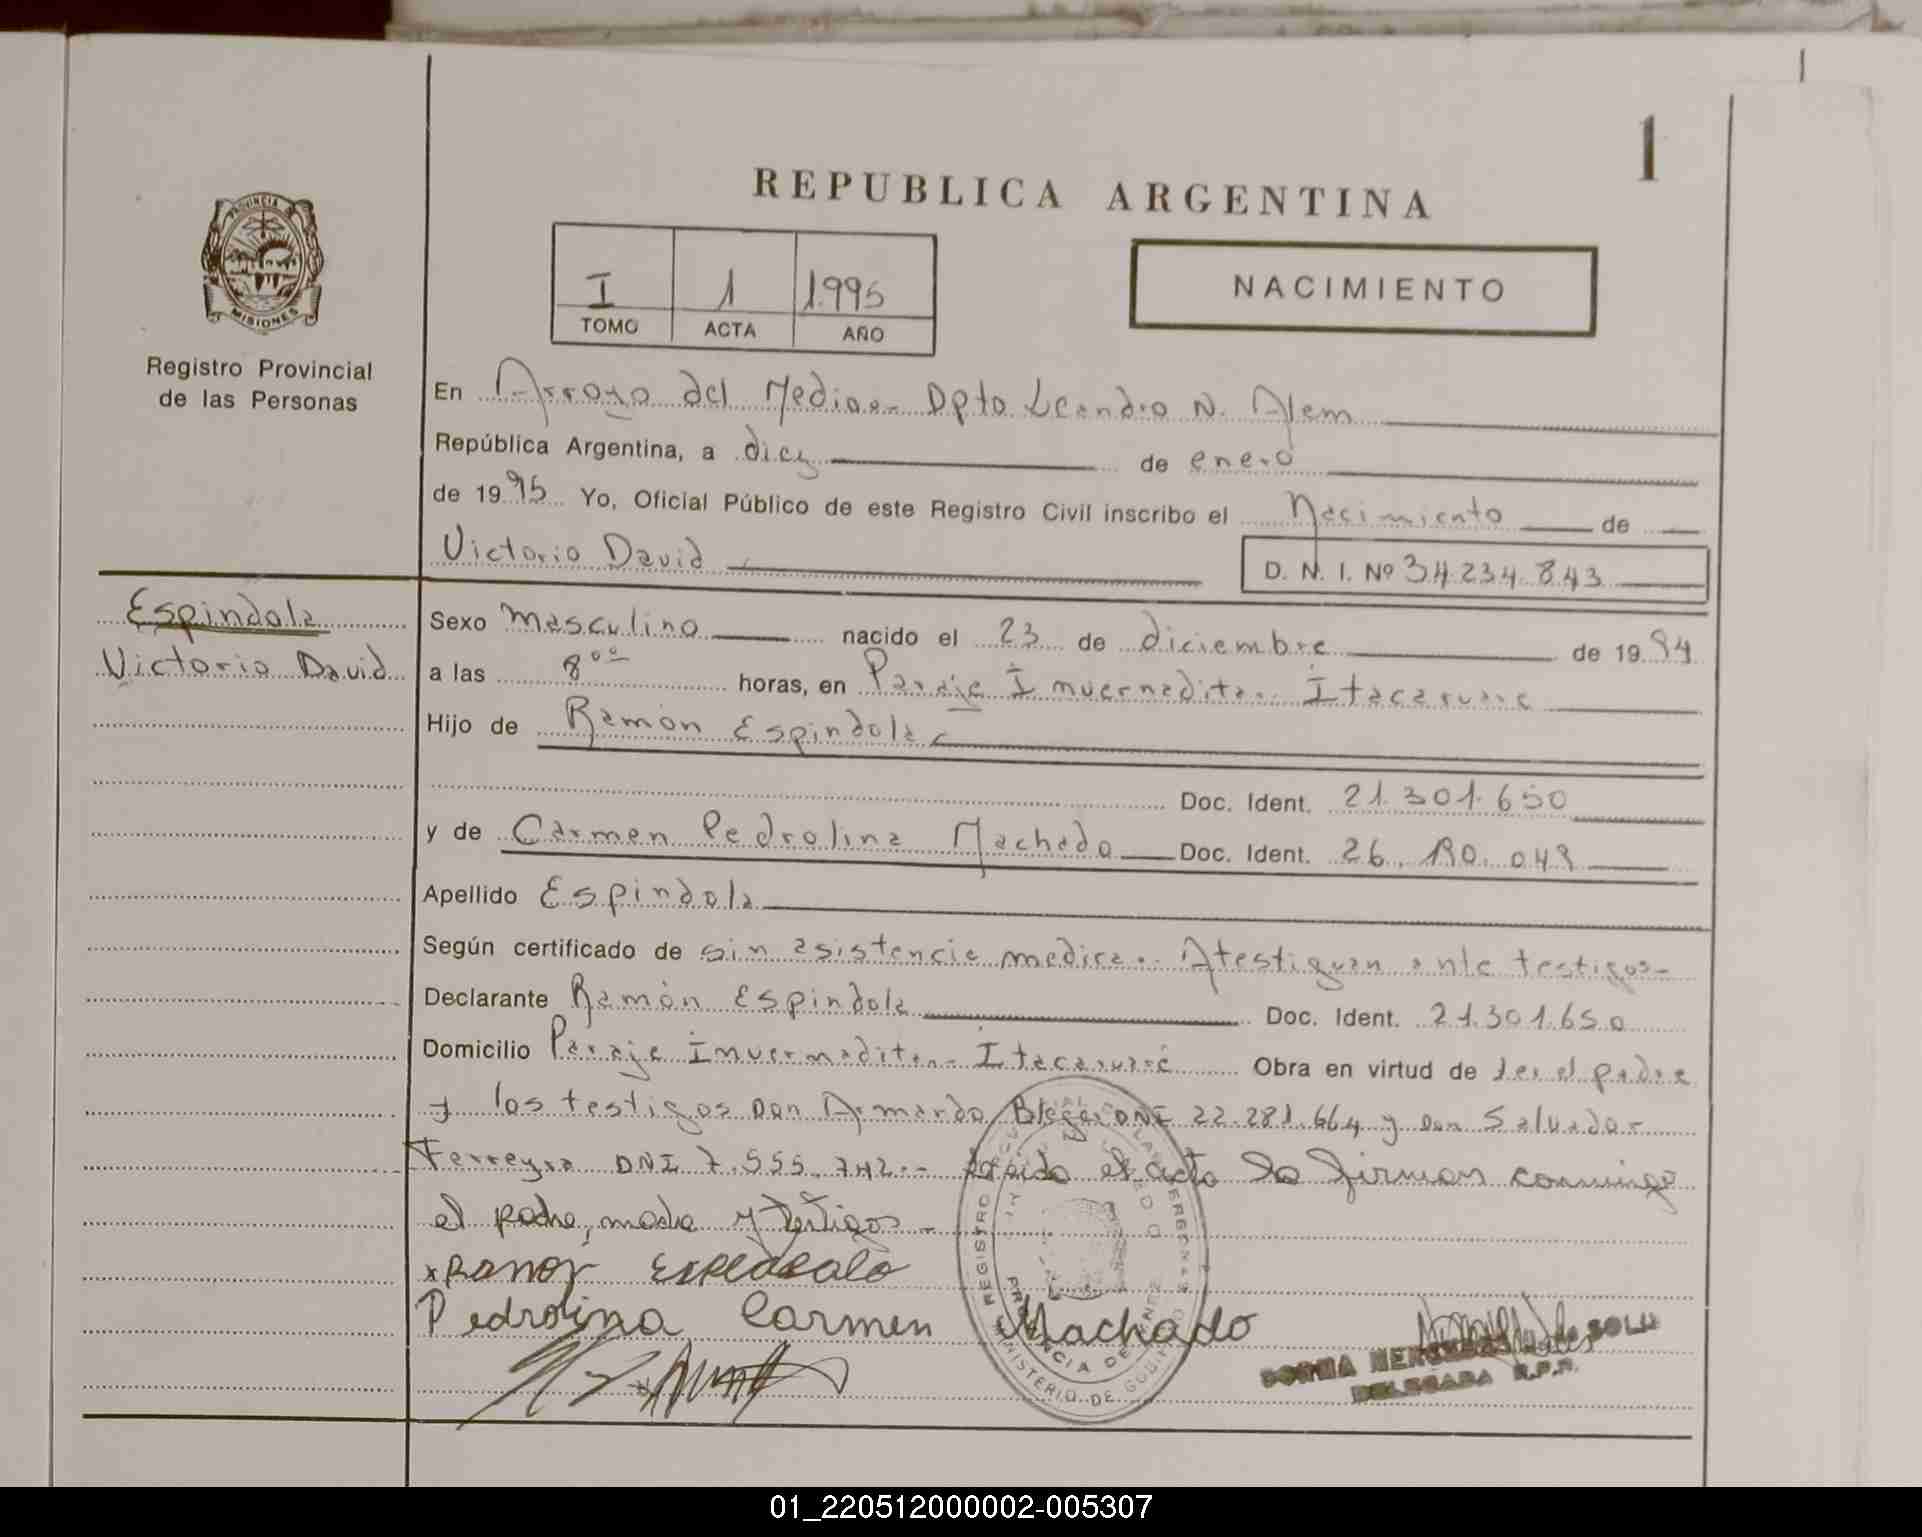 1
REPUBLICA ARGENTINA
PROVINCIA DE
MISIONES
Registro Provincial
de las Personas
I 1 1.995
TOMO ACTA AÑO
NACIMIENTO
En Arroyo del Medio.- Dpto Leandro N. Alem
República Argentina, a diez de enero
de 1995 Yo, Oficial Público de este Registro Civil inscribo el Nacimiento de
Victorio David D. N. I. Nº 34.234.843
Espindola
Victorio David
Sexo Masculino nacido el 23 de diciembre de 1994
a las 8°° horas, en Paraje Invernadita.. Itacaruare
Hijo de Ramón Espindola
Doc. Ident. 21.301.650
y de Carmen Pedrolina Machado Doc. Ident. 26.
Apellido Espindola
Según certificado de sin asistencia medica.. Atestiguan ante testigos-
Declarante Ramón Espindola Doc. Ident. 21.301.650
Domicilio Paraje Invernadita.- Itacaruaré Obra en virtud de ser el padre
y los testigos Don Armando DNI 22.281.664 y Don Salvador
Ferreyra DNI 7.555.742.- el acto lo firman conmigo
el padre, madre y testigos -
Pedrolina Carmen Machado
REGISTRO
PROVINCIA DE
MINISTERIO DE GOBIERNO
DELEGADA R.P.P.
01_220512000002-005307